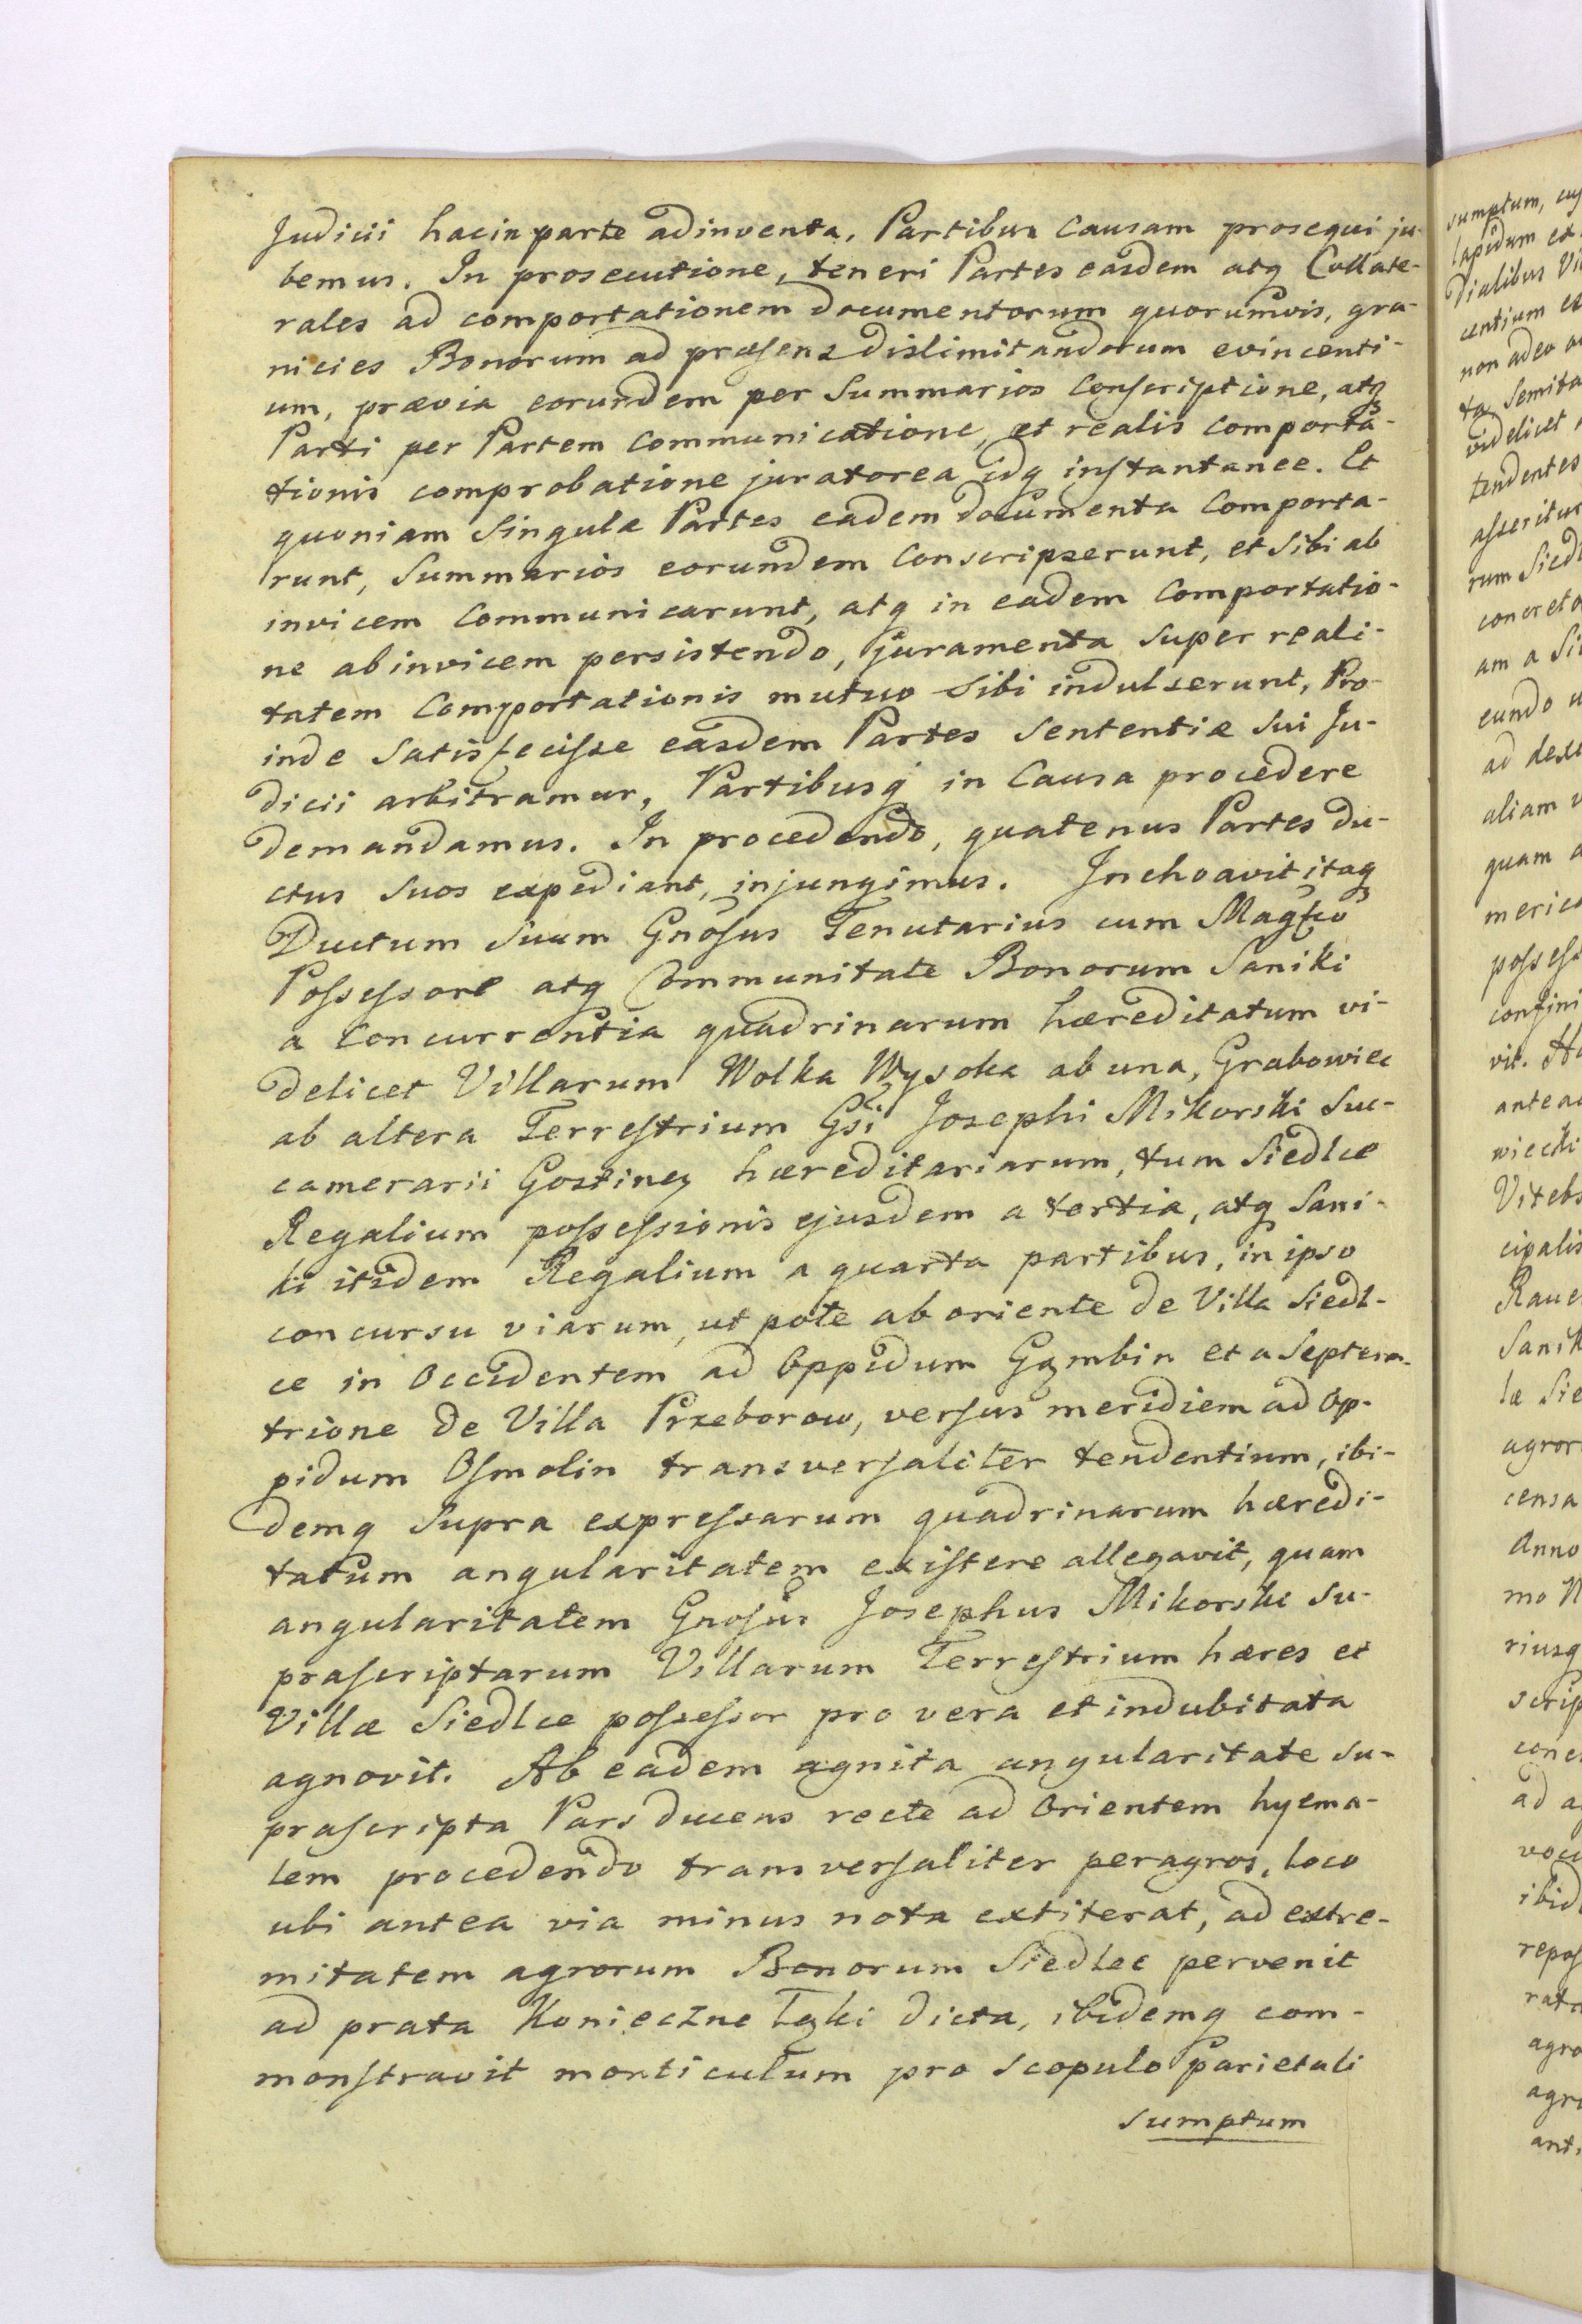 Judicii hac in parte adinventa, Partibus Causam prosequi ju-
bemus. In prosecutione, teneri Partes easdem atq Collate-
rales ad comportationem documentorum quorumvis, gra-
nicies Bonorum ad præsens dislimitandorum evincenti-
um, prævia eorundem per Summarios Conscriptione, atq
Parti per Partem Communicatione, et realis Comporta-
tionis comprobatione juratorea idq instantanee. Et
quoniam Singulæ Partes eadem documenta Comporta-
runt, Summarios eorundem Conscripserunt, et Sibi ab
invicem Communicarunt, atq in eadem Comportatio-
ne abinvicem persistendo, juramenta Super reali-
tatem Comportationis mutuo Sibi indulserunt, Pro-
inde Satisfecisse easdem Partes Sententiæ Sui Ju-
dicii arbitramur, Partibusq in Causa procedere
demandamus. In procedendo, quatenus Partes du-
ctus Suos expediant, injungimus. Inchoavit itaq
Ductum Suum Gnosus Tenutarius cum Magfco
Possessore atq Communitate Bonorum Saniki
a Concurrentia quadrinarum hæreditatum vi-
delicet Villarum Wolka Wysoka ab una, Grabowiec
ab altera Terrestrium Gsi Josephi Mikorski Suc-
camerarii Gostinen hæreditariarum, tum Siedlce
Regalium possessionis ejusdem a tertia, atq Sani-
ki itidem Regalium a quarta partibus, in ipso
concursu viarum, ut pote ab oriente de Villa Siedl-
ce in Occidentem ad Oppidum Gąmbin et a Septem-
trione de Villa Przeborow, versus meridiem ad Op-
pidum Osmolin transversaliter tendentium, ibi-
demq Supra expressarum quadrinarum hæredi-
tatum angularitatem existere allegavit, quam
angularitatem Gnosus Josephus Mikorski Su-
prascriptarum Villarum Terrestrium hæres et
Villæ Siedlce possessor pro vera et indubitata
agnovit. Ab eadem agnita angularitate Su-
prascripta Pars ducens recte ad Orientem hyema-
lem procedendo transversaliter per agros, loco
ubi antea via minus nota extiterat, ad extre-
mitatem agrorum Bonorum Siedlce pervenit
ad prata Konieczne Łąki dicta, ibidemq com-
monstravit monticulum pro Scopulo Parietali
Sumptum